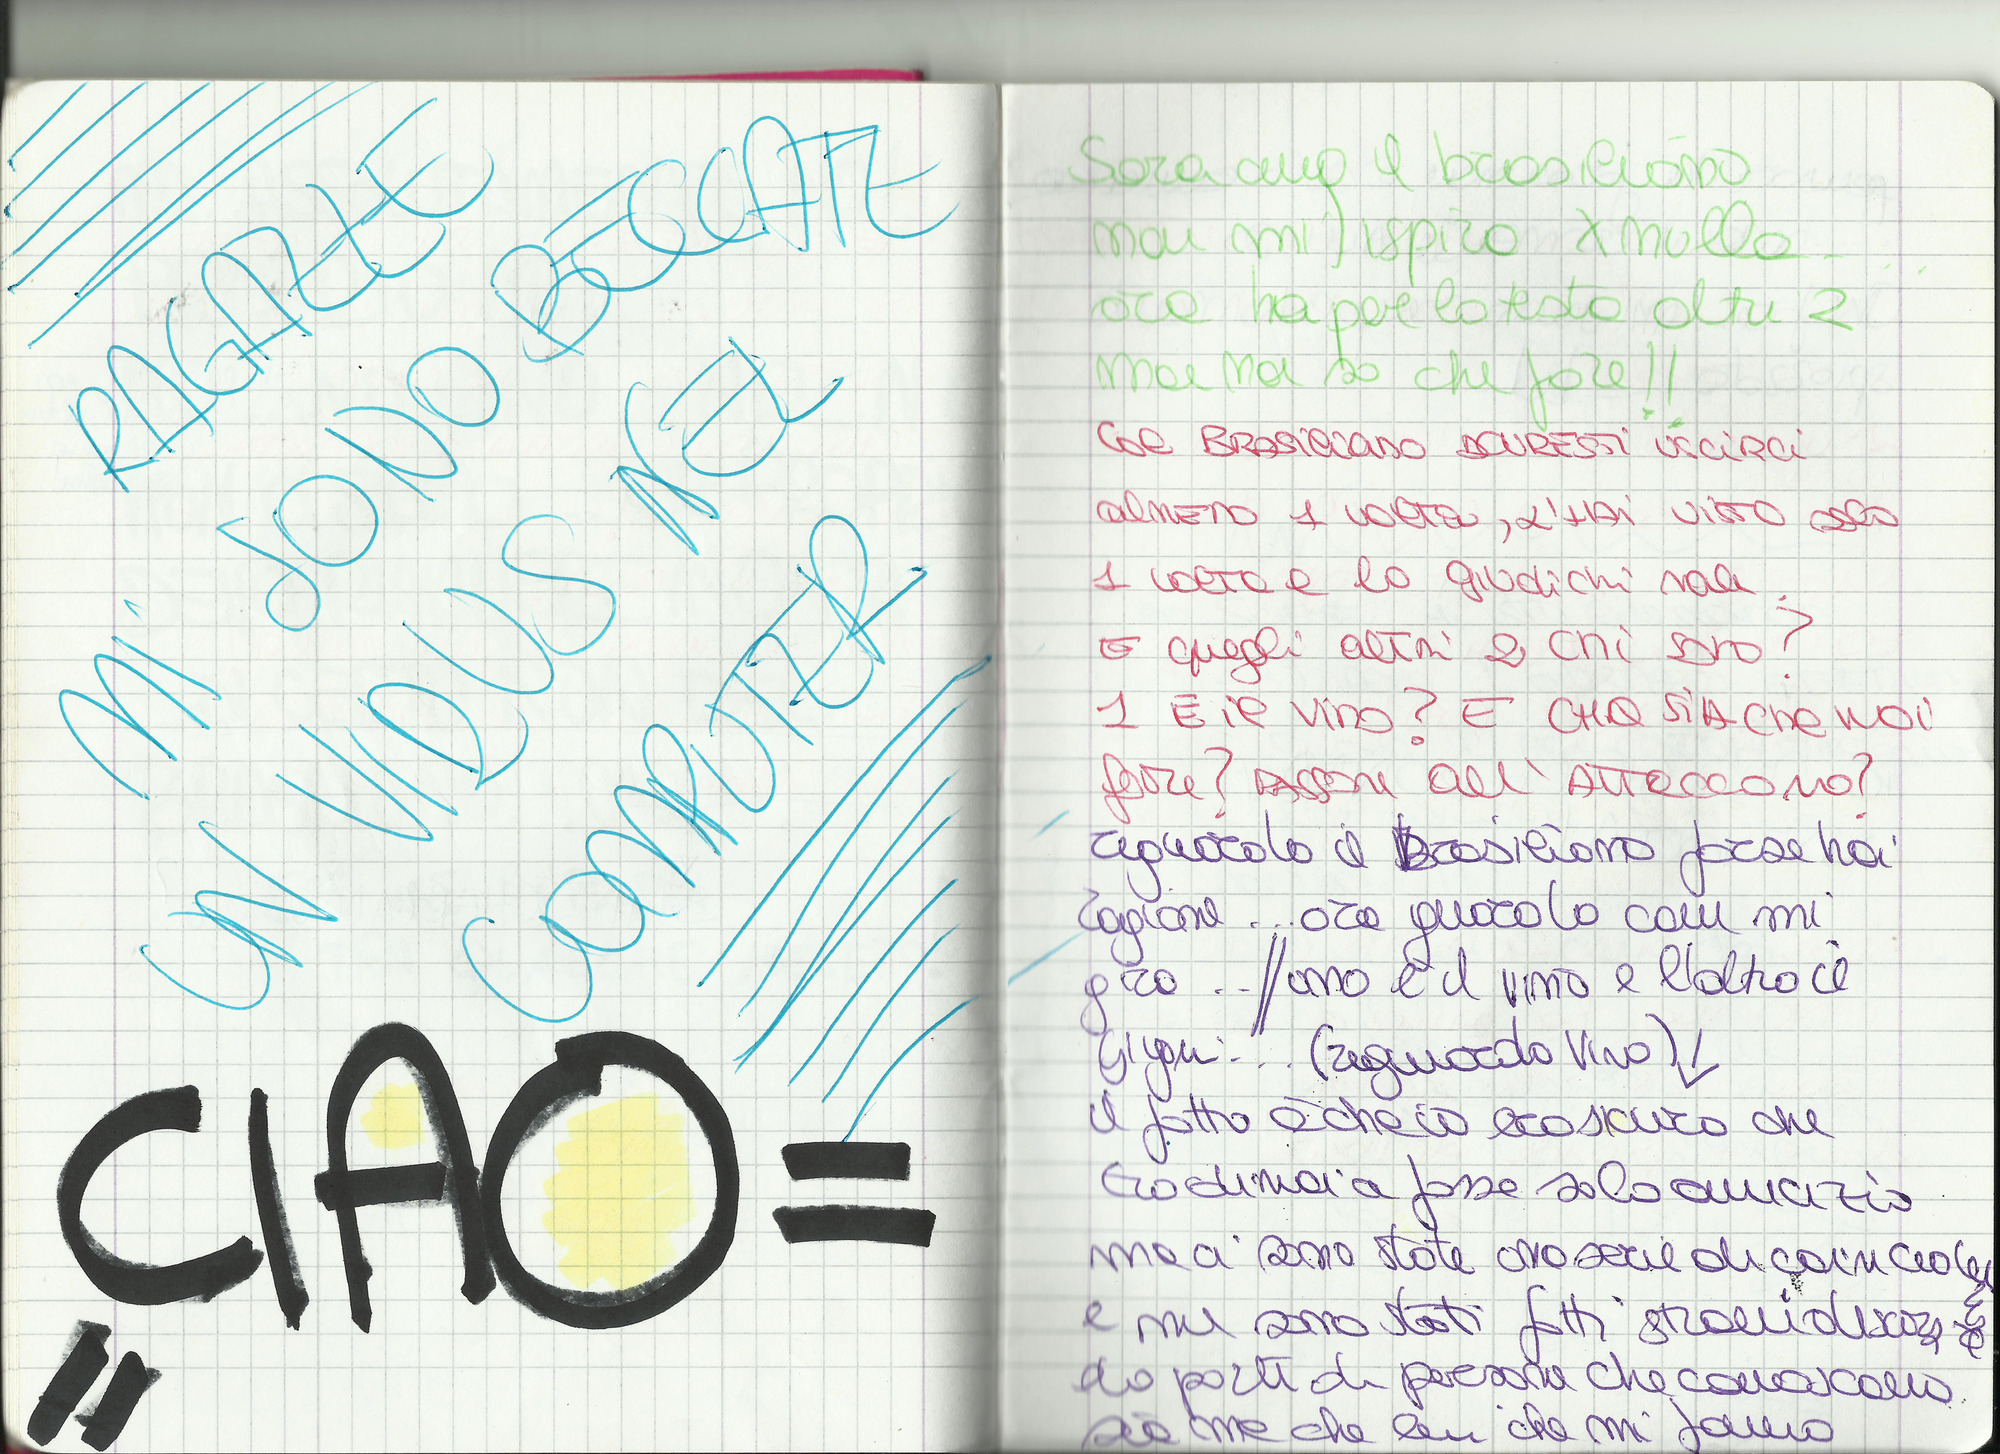 RAGAZZE
MI SONO BECCATE
UN VIRUS NEL
COMPUTER
CIAO =
"
Sara amo il brasiliano
non mi ispira x nulla...
ora ha per la testa altri 2
ma non so che fare!!
Col BRASILIANO DOVRESTI USCIRCI
almeno 1 volta, L'HAI VISTO solo
1 volta e lo giudichi male.
E quegli altri 2 chi sono?
1 E il vino? E CHE SIA che vuoi
fare? PASSARE ALL'ATTACCO NO?
riguardo il brasiliano forse hai
ragione ... ora guardo com mi
gira ... // uno è il vino e l'altro è
... (riguardo Vino) ↓
il fatto è che io ero sicura che
fosse solo amicizia
ma ci sono state una serie di
e mi sono stati fatti strani discorsi
da parti di persone che conoscono
sia me che lui che mi fanno